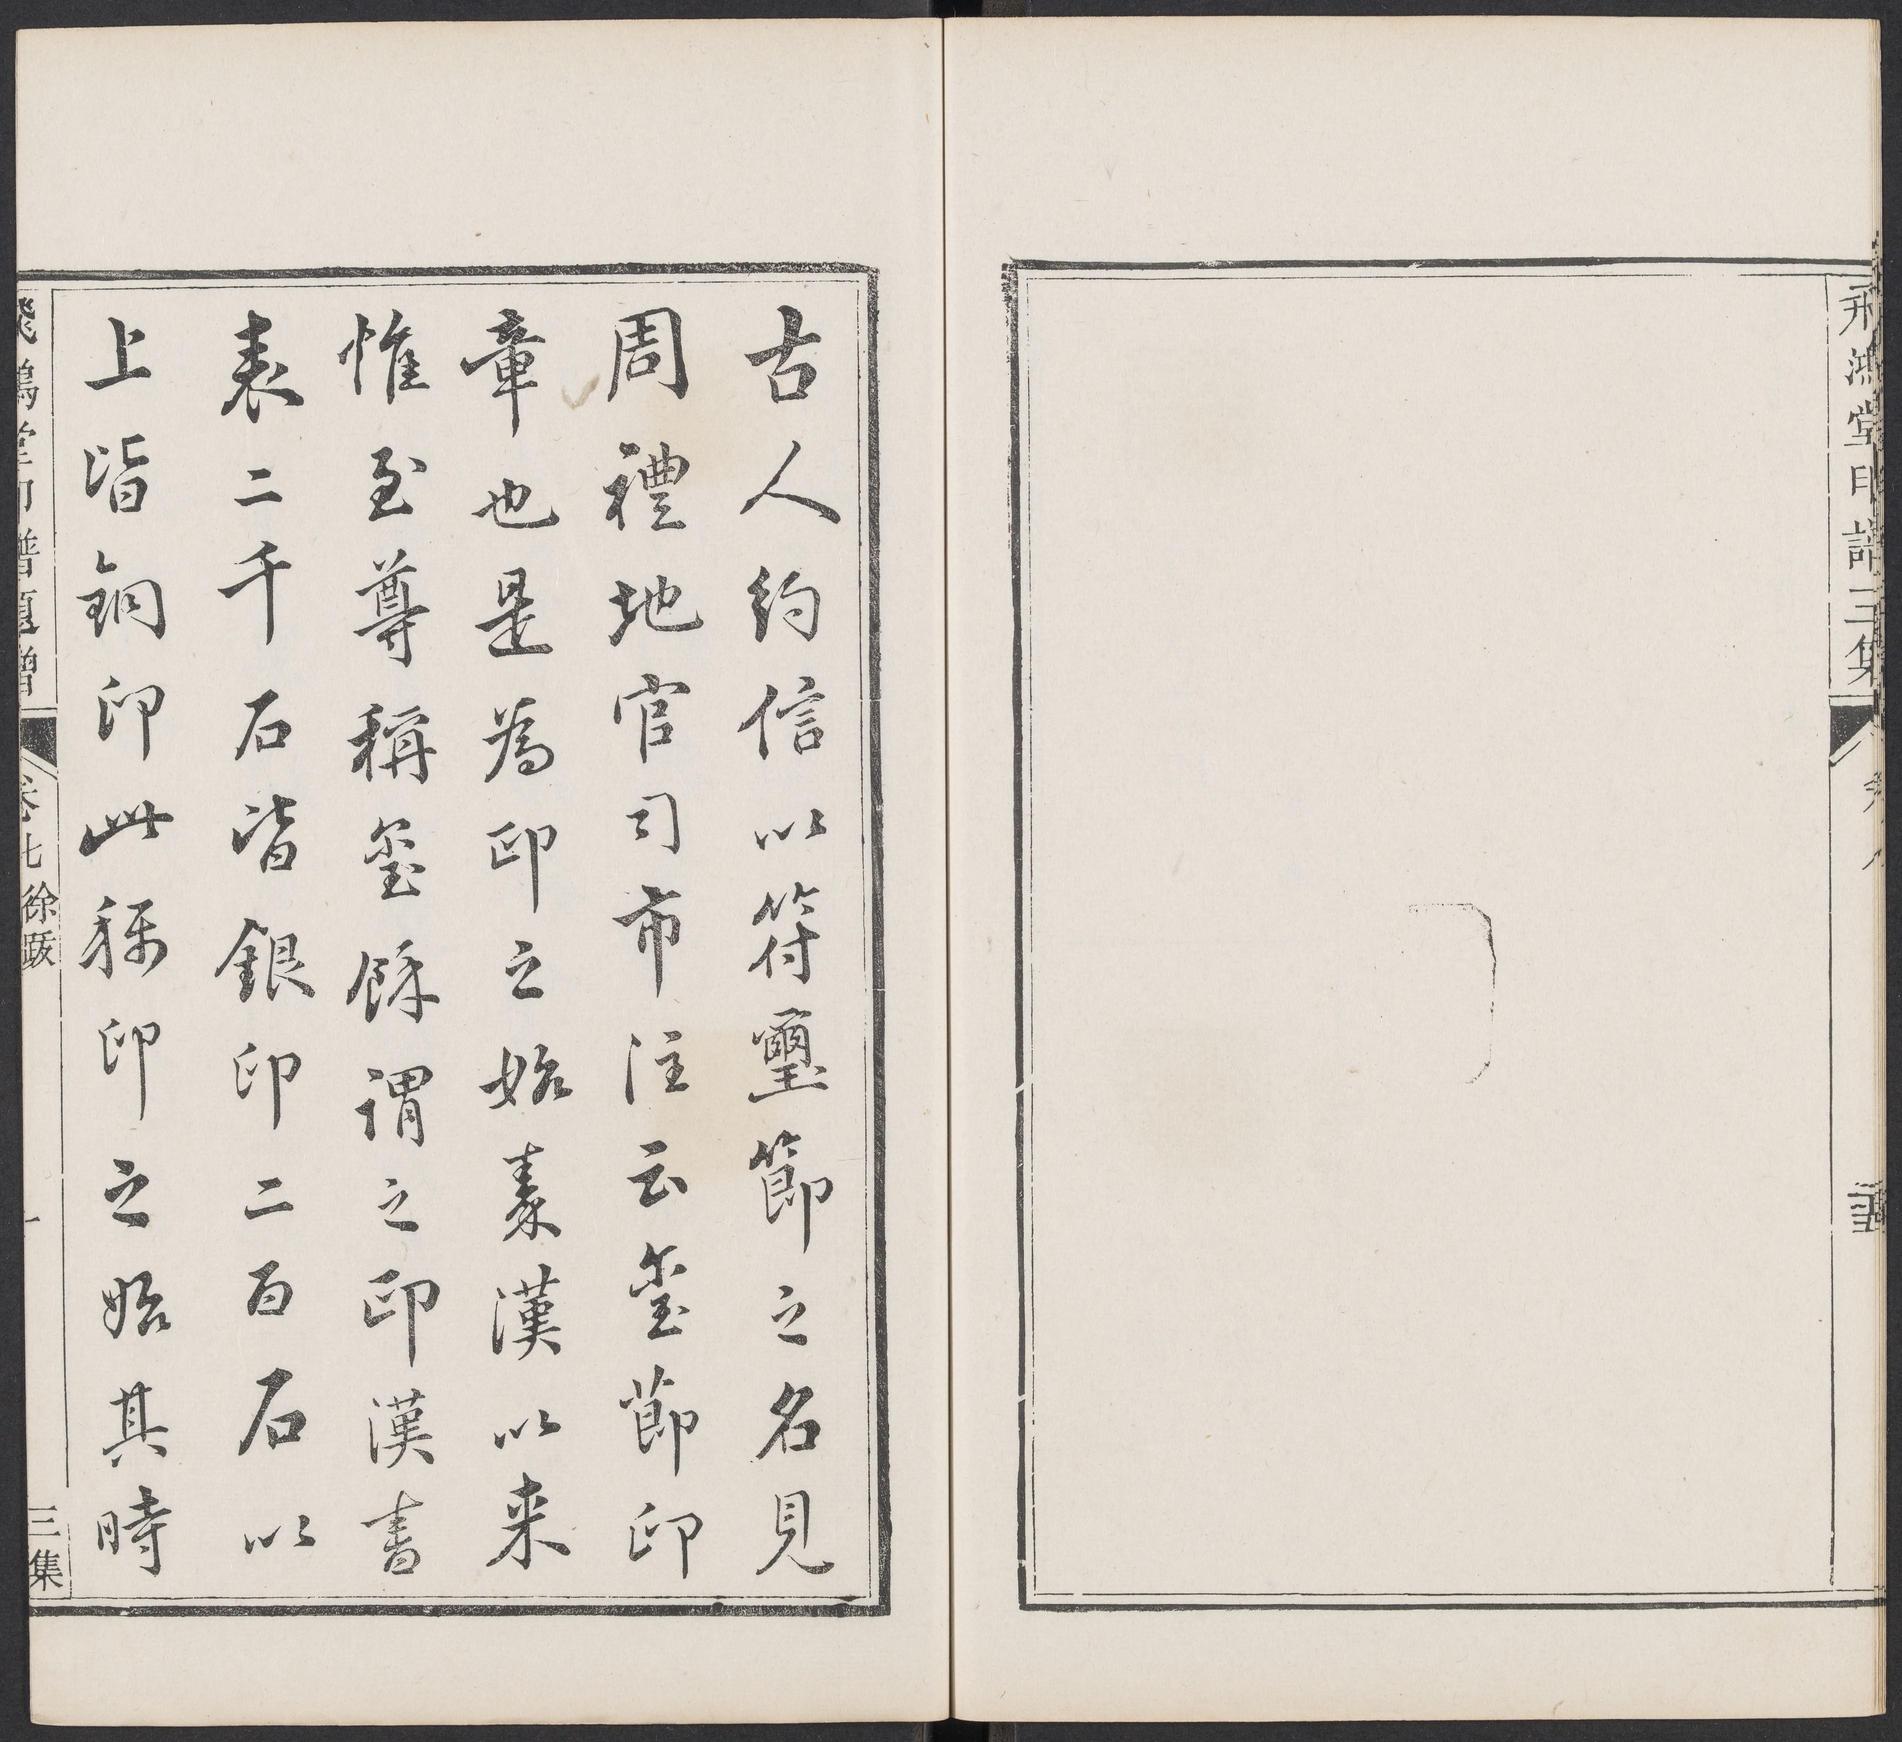 飛鴻堂印譜三集
卷八
古人約信以符璽節之名見
周禮地官司市注云玺節印
章也是為印之始秦漢以来
惟至尊稱玺餘謂之印漢書
表二千石皆銀印二百石以
上皆铜印此稱印之始其時
飛鴻堂印譜題贈
卷七徐跋
一
三集